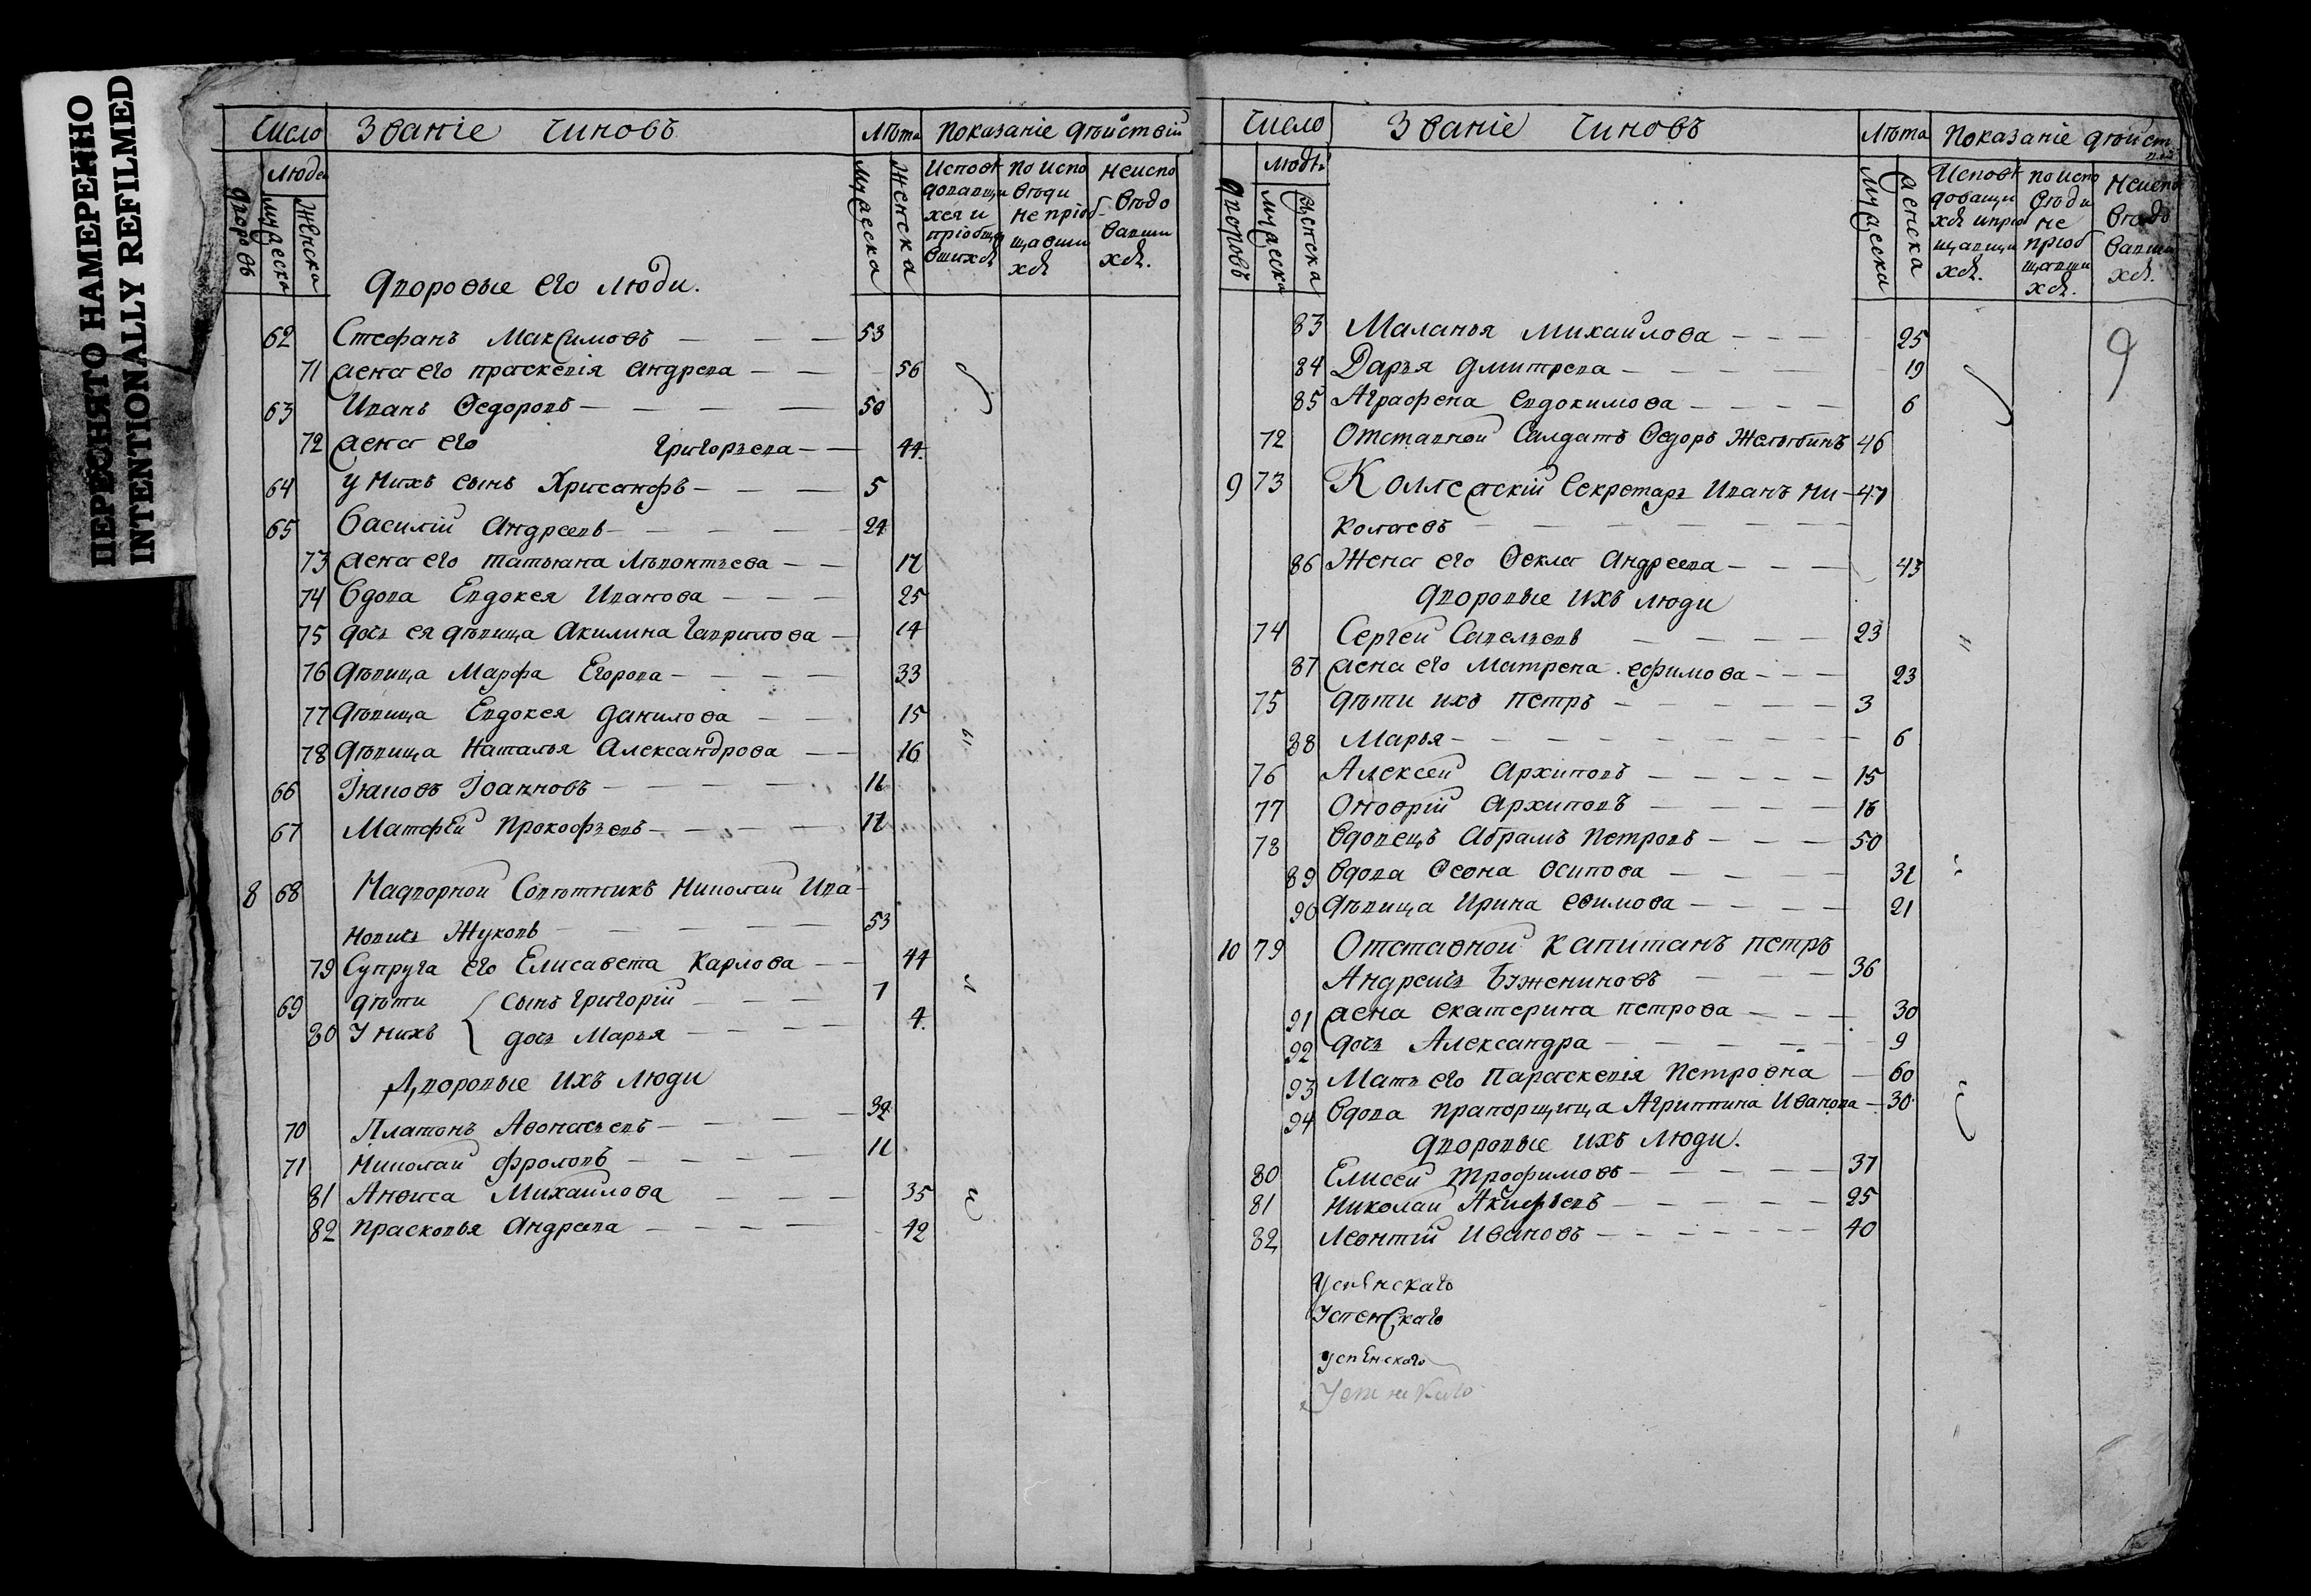 ПЕРЕСНЯТО НАМЕРЕННО
INTENTIONALLY REFILMED
Число Званіе Чиновъ Лѣта Показаніе дѣйствій
дворовъ Людей мужеска женска Мужеска Женска
Исповѣдовавшихся и пріобщавшихся По исповѣди не пріобщавшихся Неисповѣдовавшихся
Дворовые его люди.
62 Стефанъ Максимовъ 53
71 жена его праскевія андрева 56
63 Иванъ Ѳедоровъ 50
72 жена его Григорьева 44
64 у нихъ сынъ Хрисанфъ 5
65 Василій Андреевъ 24
73 жена его татьяна Лѣвонтьева 17
74 вдова Евдокея Иванова 25
75 дочь ея дѣвица Акилина Гаврилова 14
76 дѣвица Марфа Егорова 33
77 дѣвица Евдокея данилова 15
78 дѣвица Наталья Александрова 16
66 Іаковъ Іоанновъ 11
67 Матфей Прокофьевъ 12
8 68 Надворной Совѣтникъ Николай Ива
новичь Жуковъ 53
79 Супруга его Елисавета Карлова 44
69 дѣти сынъ григорій 7
80 У нихъ дочь Марья 4
Дворовые ихъ люди
70 Платонъ Аѳонасьевъ 32
71 Николай фроловъ 11
81 Анѳиса Михайлова 35
82 прасковья Андрева 42
Число Званіе Чиновъ Лѣта Показаніе дѣйст
вій
дворовъ людей мужеска женска Мужеска женска
Исповѣдовавшихся и пріобщавшихся По исповѣди не пріобщавшихся Неисповѣдовавшихся
9
83 Маланья михайлова 25
84 Дарья дмитрева 19
85 Аграфена евдокимова 6
72 Отставной Салдатъ Ѳедоръ Желѣбинъ 46
9 73 Коллежскій Секретарь Иванъ Ни 47
колаевъ
86 Жена его Ѳекла андреева 43
Дворовые ихъ люди
74 Сергей Савельевъ 23
87 жена его Матрена ефимова 23
75 дѣти ихъ петръ 3
88 Марья 6
76 Алексей архиповъ 15
77 Оноѳрій архиповъ 16
78 вдовецъ Абрамъ Петровъ 50
89 вдова Ѳеѳна Осипова 31
90 дѣвица Ирина еѳимова 21
10 79 Отставной капитанъ петръ
Андреичь Бужениновъ 36
91 жена екатерина петрова 30
92 дочь Александра 9
93 Мать его Параскевія Петровна 60
94 вдова прапорщица Агриппина Иванова 30
Дворовые ихъ люди.
80 Елисей трофимовъ 37
81 Николай Акифьевъ 25
82 Леонтій Ивановъ 40
Успѣнскаго
Успенскаго
успѣнскаго